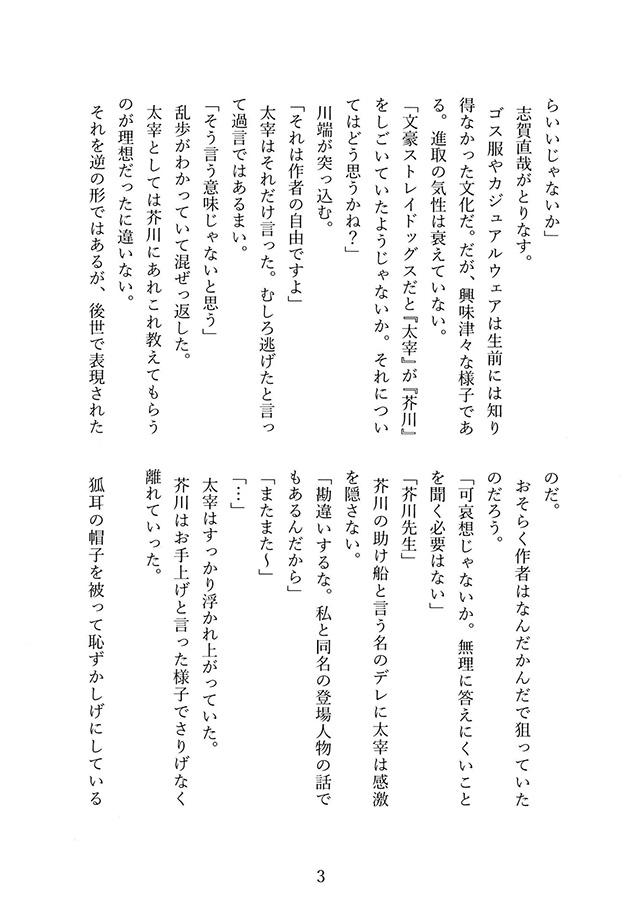 らいいじゃないか」
志賀直哉がとりなす。
ゴス服やカジュアルウェアは生前には知り
得なかった文化だ。だが、興味津々な様子であ
る。進取の気性は衰えていない。
「文豪ストレイドッグスだと『太宰』が『芥川』
をしごいていたようじゃないか。それについ
てはどう思うかね？」
川端が突っ込む。
「それは作者の自由ですよ」
太宰はそれだけ言った。むしろ逃げたと言っ
て過言ではあるまい。
「そう言う意味じゃないと思う」
乱歩がわかっていて混ぜっ返した。
太宰としては芥川にあれこれ教えてもらう
のが理想だったに違いない。
それを逆の形ではあるが、後世で表現された
のだ。
おそらく作者はなんだかんだで狙っていた
のだろう。
「可哀想じゃないか。無理に答えにくいこと
を聞く必要はない」
「芥川先生」
芥川の助け船と言う名のデレに太宰は感激
を隠さない。
「勘違いするな。私と同名の登場人物の話で
もあるんだから」
「またまた〜」
「…」
太宰はすっかり浮かれ上がっていた。
芥川はお手上げと言った様子でさりげなく
離れていった。
狐耳の帽子を被って恥ずかしげにしている
3